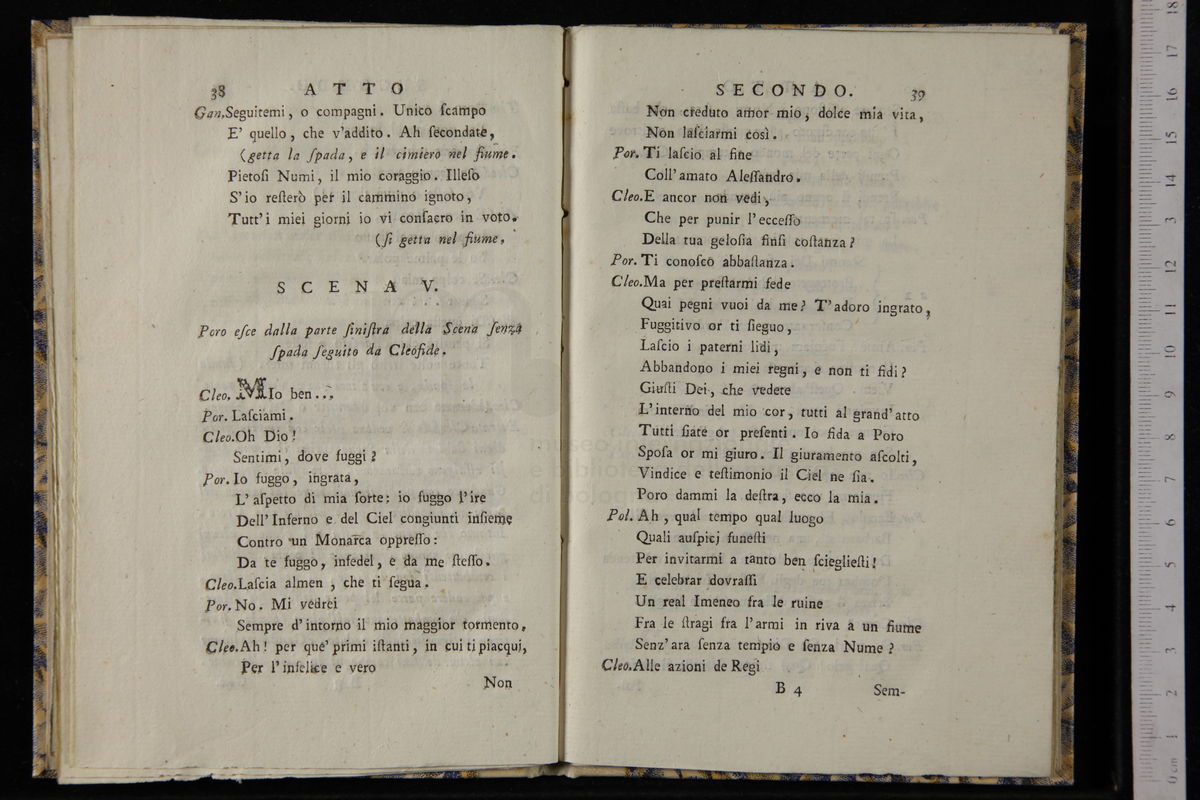 38 ATTO
Gan.Seguitemi, o compagni. Unico ſcampo
E' quello, che v'addito. Ah ſecondate,
(getta la ſpada, e il cimiero nel fiume.
Pietoſi Numi, il mio coraggio. Illeſo
S'io reſterò per il cammino ignoto,
Tutt'i miei giorni io vi conſacro in voto.
(ſi getta nel fiume,
SCENA V.
Poro eſce dalla parte ſiniſtra della Scena ſenza
ſpada ſeguito da Cleofide.
Cleo. MIo ben...
Por. Laſciami.
Cleo.Oh Dio!
Sentimi, dove fuggi?
Por. Io fuggo, ingrata,
L' aſpetto di mia ſorte: io fuggo l'ire
Dell'Inferno e del Ciel congiunti inſieme
Contro un Monarca oppreſſo:
Da te fuggo, infedel, e da me ſteſſo.
Cleo.Laſcia almen, che ti ſegua.
Por. No. Mi vedrei
Sempre d'intorno il mio maggior tormento,
Cleo.Ah! per que' primi iſtanti, in cui ti piacqui,
Per l'infelice e vero
Non
SECONDO. 39
Non creduto amor mio, dolce mia vita,
Non laſciarmi così.
Por. Ti laſcio al fine
Coll'amato Aleſſandro.
Cleo.E ancor non vedi,
Che per punir l'ecceſſo
Della tua geloſia finſi coſtanza?
Por. Ti conoſco abbaſtanza.
Cleo.Ma per preſtarmi fede
Quai pegni vuoi da me? T'adoro ingrato,
Fuggitivo or ti ſieguo,
Laſcio i paterni lidi,
Abbandono i miei regni, e non ti fidi?
Giuſti Dei, che vedete
L'interno del mio cor, tutti al grand'atto
Tutti ſiate or preſenti. Io fida a Poro
Spoſa or mi giuro. Il giuramento aſcolti,
Vindice e teſtimonio il Ciel ne ſia.
Poro dammi la deſtra, ecco la mia.
Pol. Ah, qual tempo qual luogo
Quali auſpicj funeſti
Per invitarmi a tanto ben ſciegliеſti!
E celebrar dovraſſi
Un real Imeneo fra le ruine
Fra le ſtragi fra l'armi in riva a un fiume
Senz'ara ſenza tempio e ſenza Nume?
Cleo.Alle azioni de Regi
B 4 Sem-